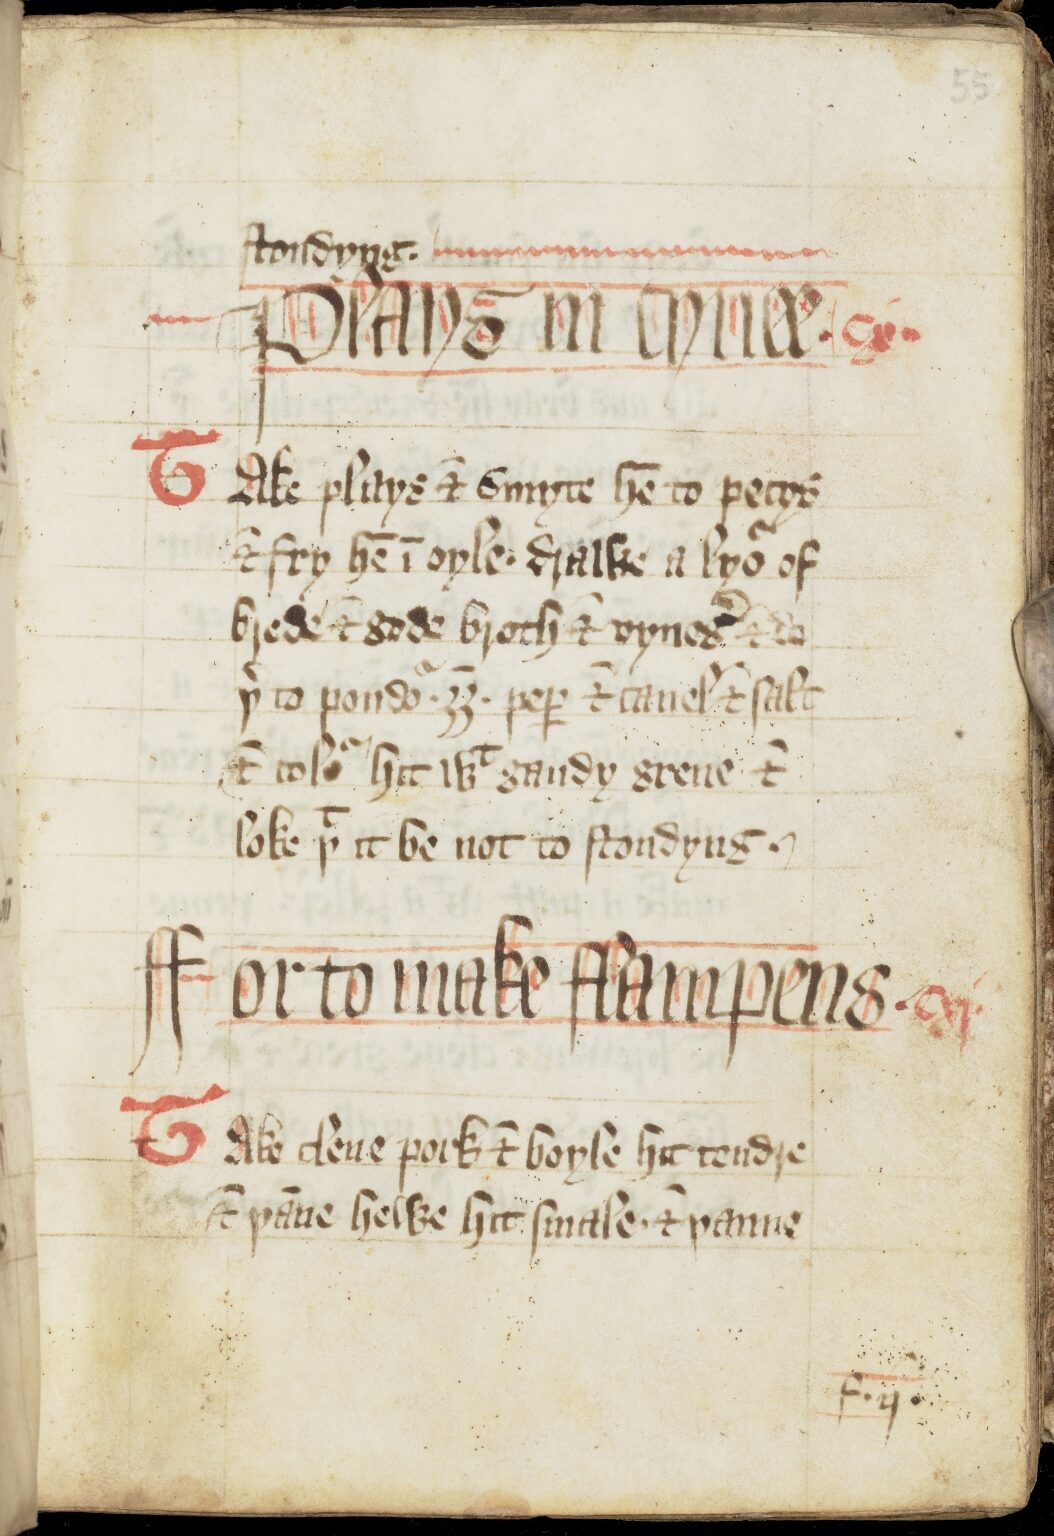 55
stondyng.
Plays in cyuee. cx.
Take plays & smyte hē to pecys
& fry hē ī oyle. drawe a lyoʳ of
brede & gode broth & vyneg̃ & do
þʳ to poudoʳ. ȝȝ. peꝑ & canel & salt
& coloʳ hit wᵗ gaudy grene &
loke yᵗ it be not to stondyng.
ffor to make fflampens. cxj.
Take clene pork & boyle hit tendre
& þāne hewe hit smale. & þanne
f. ij.